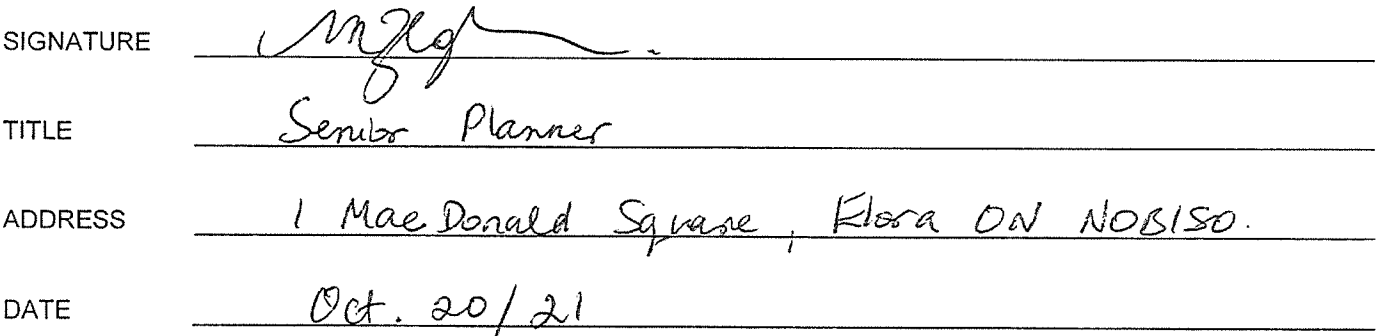 SIGNATURE
TITLE Senior Planner
ADDRESS 1 MacDonald Square, Elora ON N0B1S0.
DATE Oct. 20/21